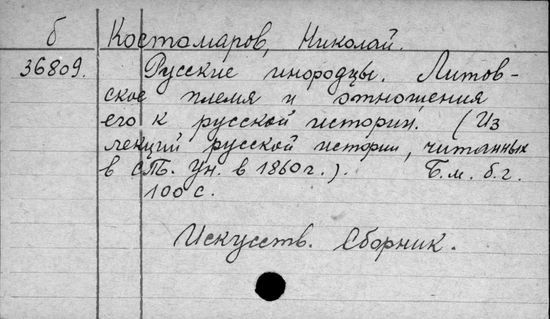 б Костомаров, Николай.
36809. Русские инородцы. Литов-
ское племя и отношения
его к русской истории. (Из
лекций русской истории, читанных
в СПб. Ун. в 1860 г.). Б.м. б.г.
100 с.
Искусств. Сборник.